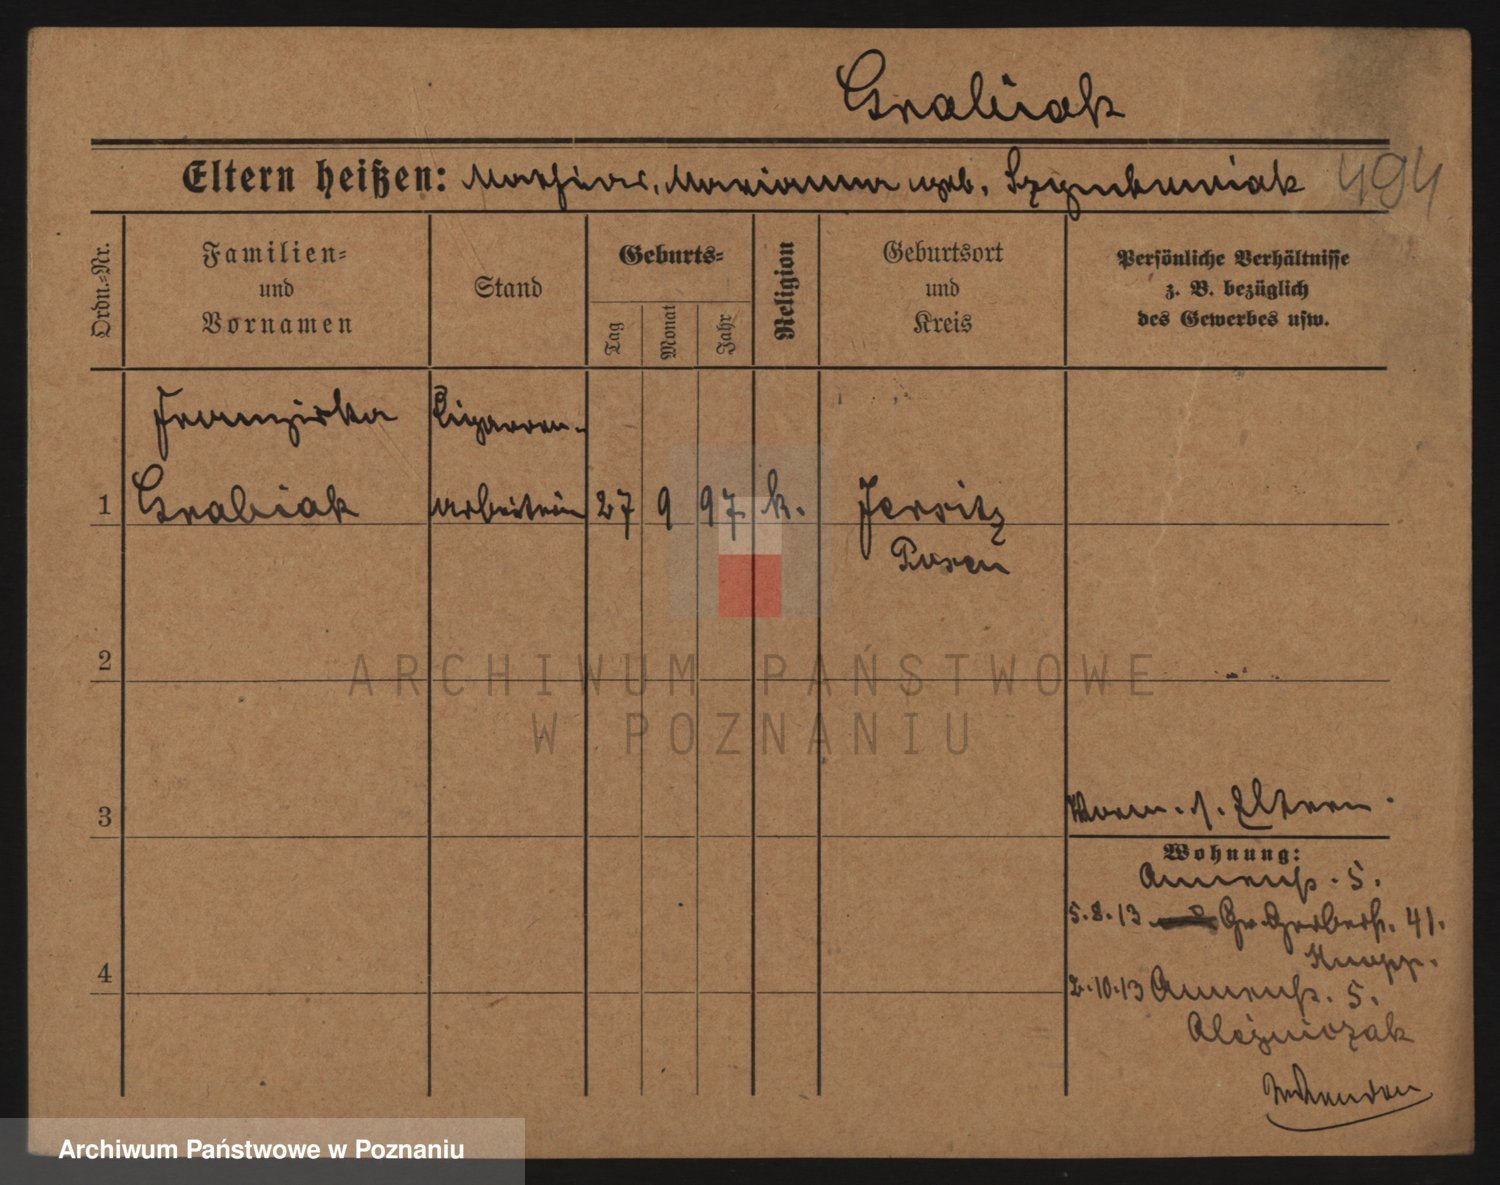 Grabiak
Eltern heißen: Mathias, Marianna geb. Szymkowiak
494
Ordn.-Nr.
Familien-
und
Vornamen
Stand
Geburts-
Tag
Monat
Jahr
Religion
Geburtsort
und
Kreis
Persönliche Verhältnisse
z. B. bezüglich
des Gewerbes usw.
Franziska
Cigarren-
1
Grabiak
arbeiterin
27
9
97
k.
Jersitz
Posen
2
ARCHIWUM PAŃSTWOWE
W POZNANIU
3
Eltern.
Wohnung:
Annenstr. 5.
5.8.13 Gr. Gerberstr. 41.
4
2.10.13 Annenstr. 5.
Archiwum Państwowe w Poznaniu